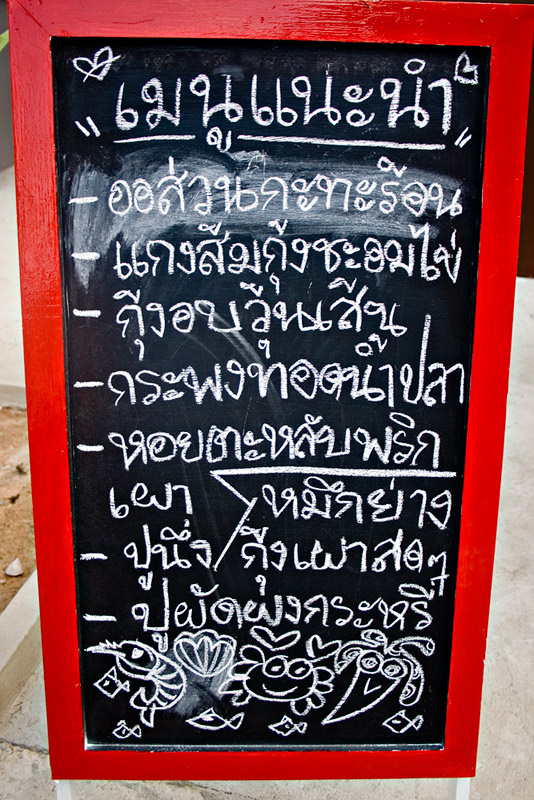 "เมนูแนะนำ"
- ออส่วนกะทะร้อน
- แกงส้มกุ้งชะอมไข่
- กุ้งอบวุ้นเส้น
- กระพงทอดน้ำปลา
- หอยตะหลับพริก
เผา หมึกย่าง
- ปูนึ่ง / กุ้งเผาสดๆ
- ปูผัดผงกระหรี่